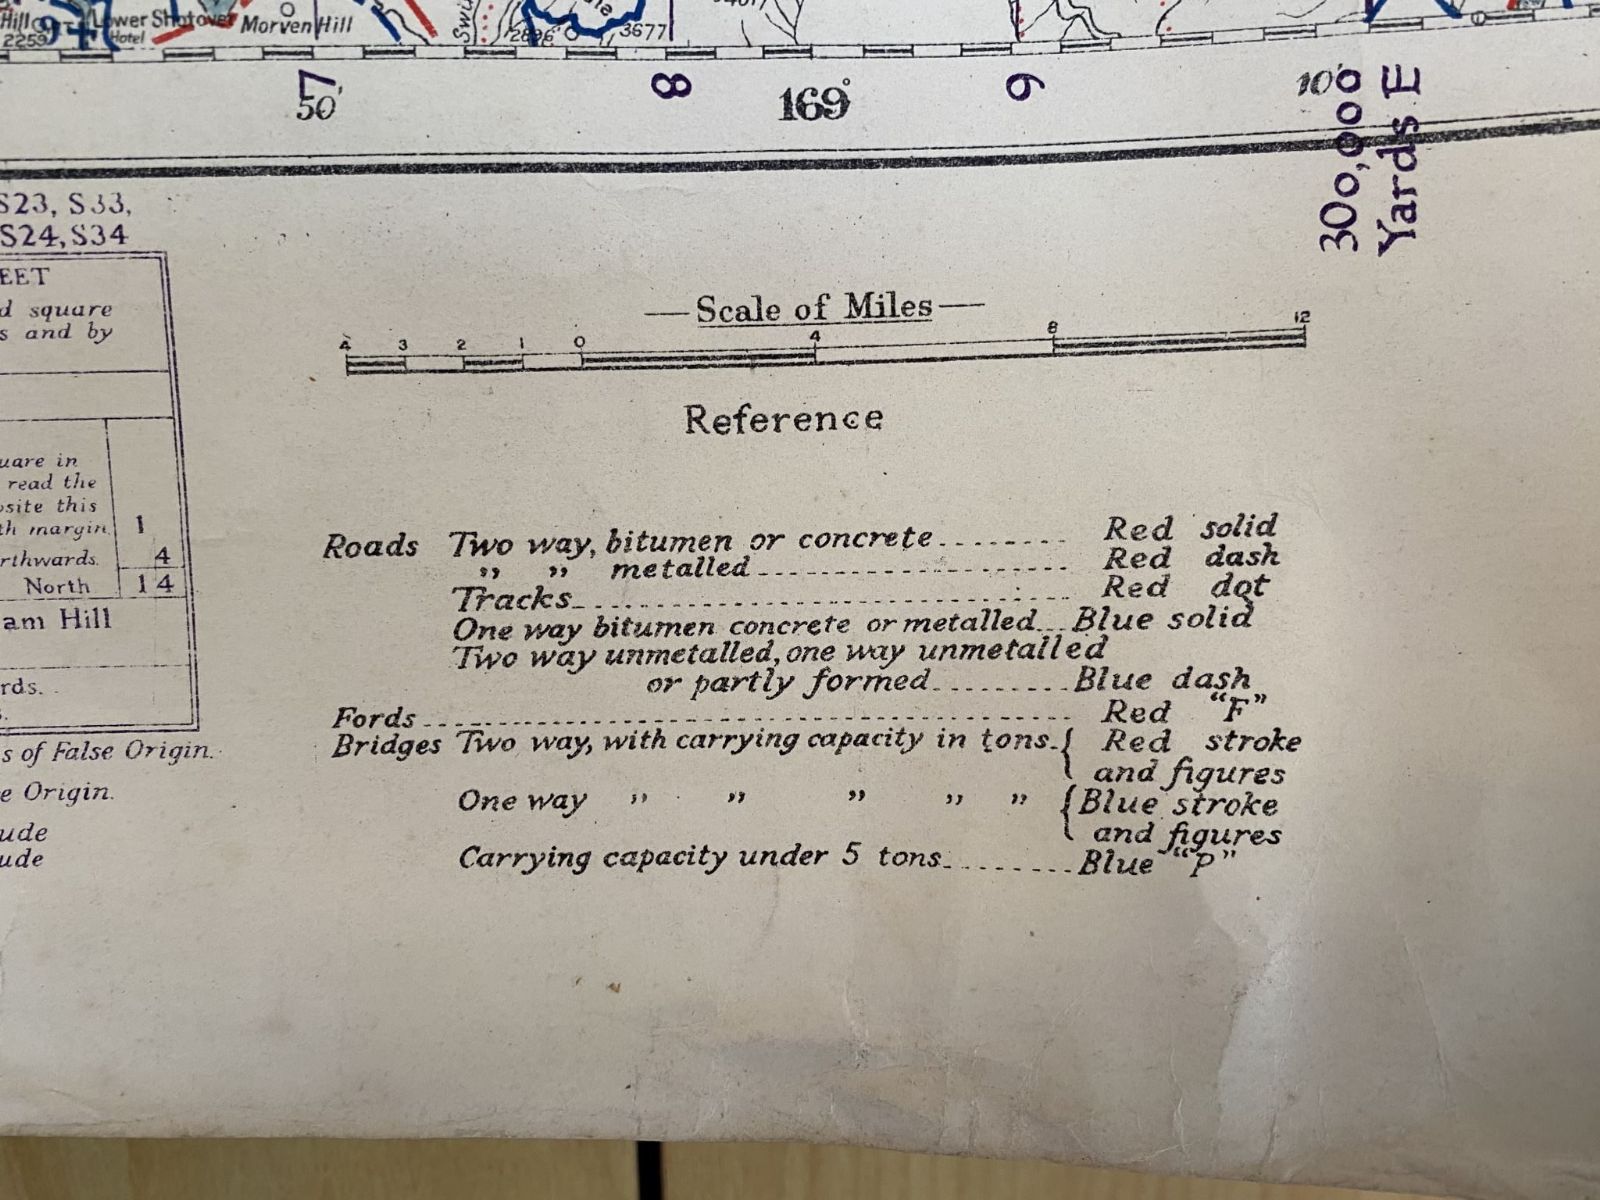 Hill Lower Shotover Morven Hill
2259 Hotel 2896 3677
50' 7 8 169° 9 10'
300,000
Yards E
S23, S33,
S24, S34
EET
d square
s and by
uare in
read the
osite this
th margin. 1
rthwards. 4
North 14
am Hill
rds.
s of False Origin.
e Origin.
ude
ude
Scale of Miles
4 3 2 1 0 4 8 12
Reference
Roads Two way, bitumen or concrete........ Red solid
" " metalled.................. Red dash
Tracks.............................. Red dot
One way bitumen concrete or metalled... Blue solid
Two way unmetalled, one way unmetalled
or partly formed......... Blue dash
Fords........................................ Red "F"
Bridges Two way, with carrying capacity in tons. { Red stroke
and figures
One way " " " " " { Blue stroke
and figures
Carrying capacity under 5 tons......... Blue "P"